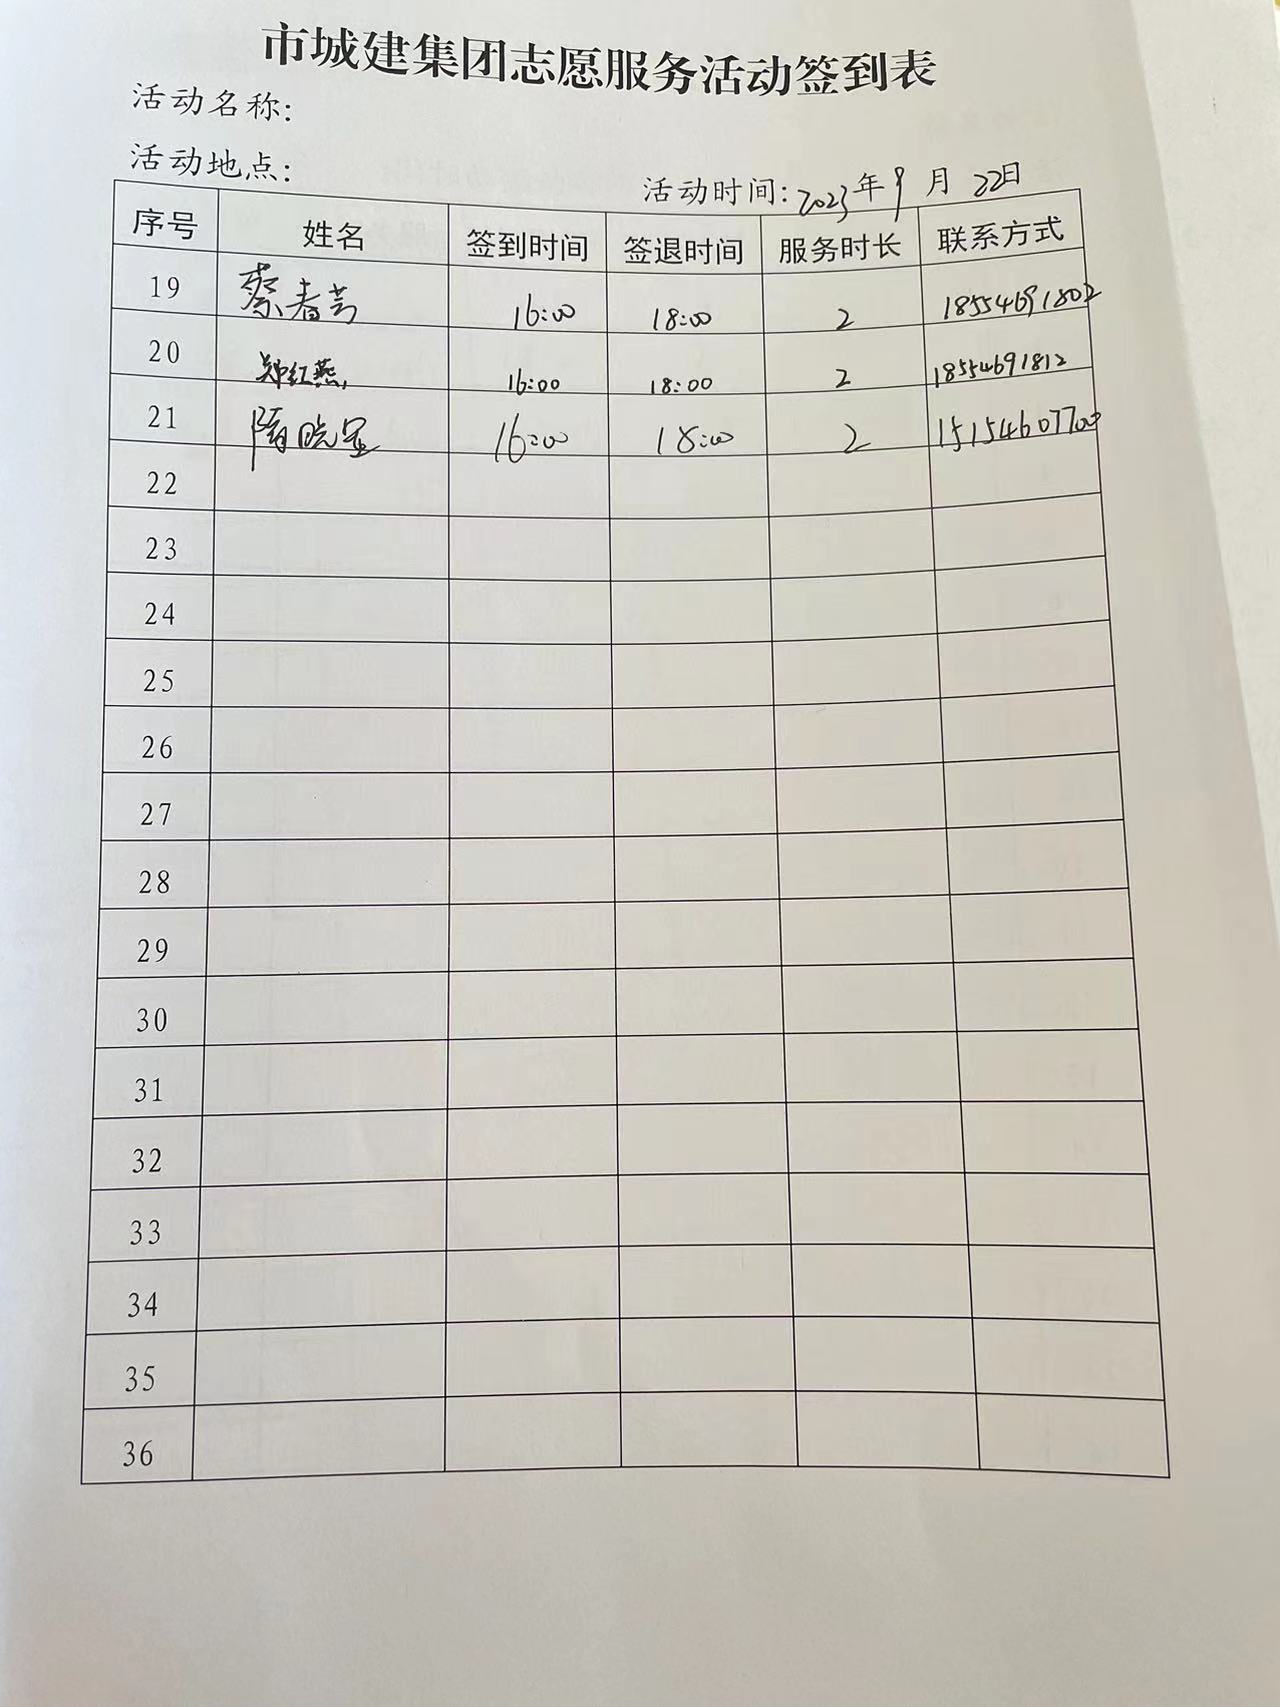 市城建集团志愿服务活动签到表
活动名称:
活动地点:
活动时间: 2023年9月22日
序号 姓名 签到时间 签退时间 服务时长 联系方式
19 蔡春芸 16:00 18:00 2 18554691802
20 郑红燕 16:00 18:00 2 18554691812
21 隋晓 16:00 18:00 2 15154607700
22
23
24
25
26
27
28
29
30
31
32
33
34
35
36